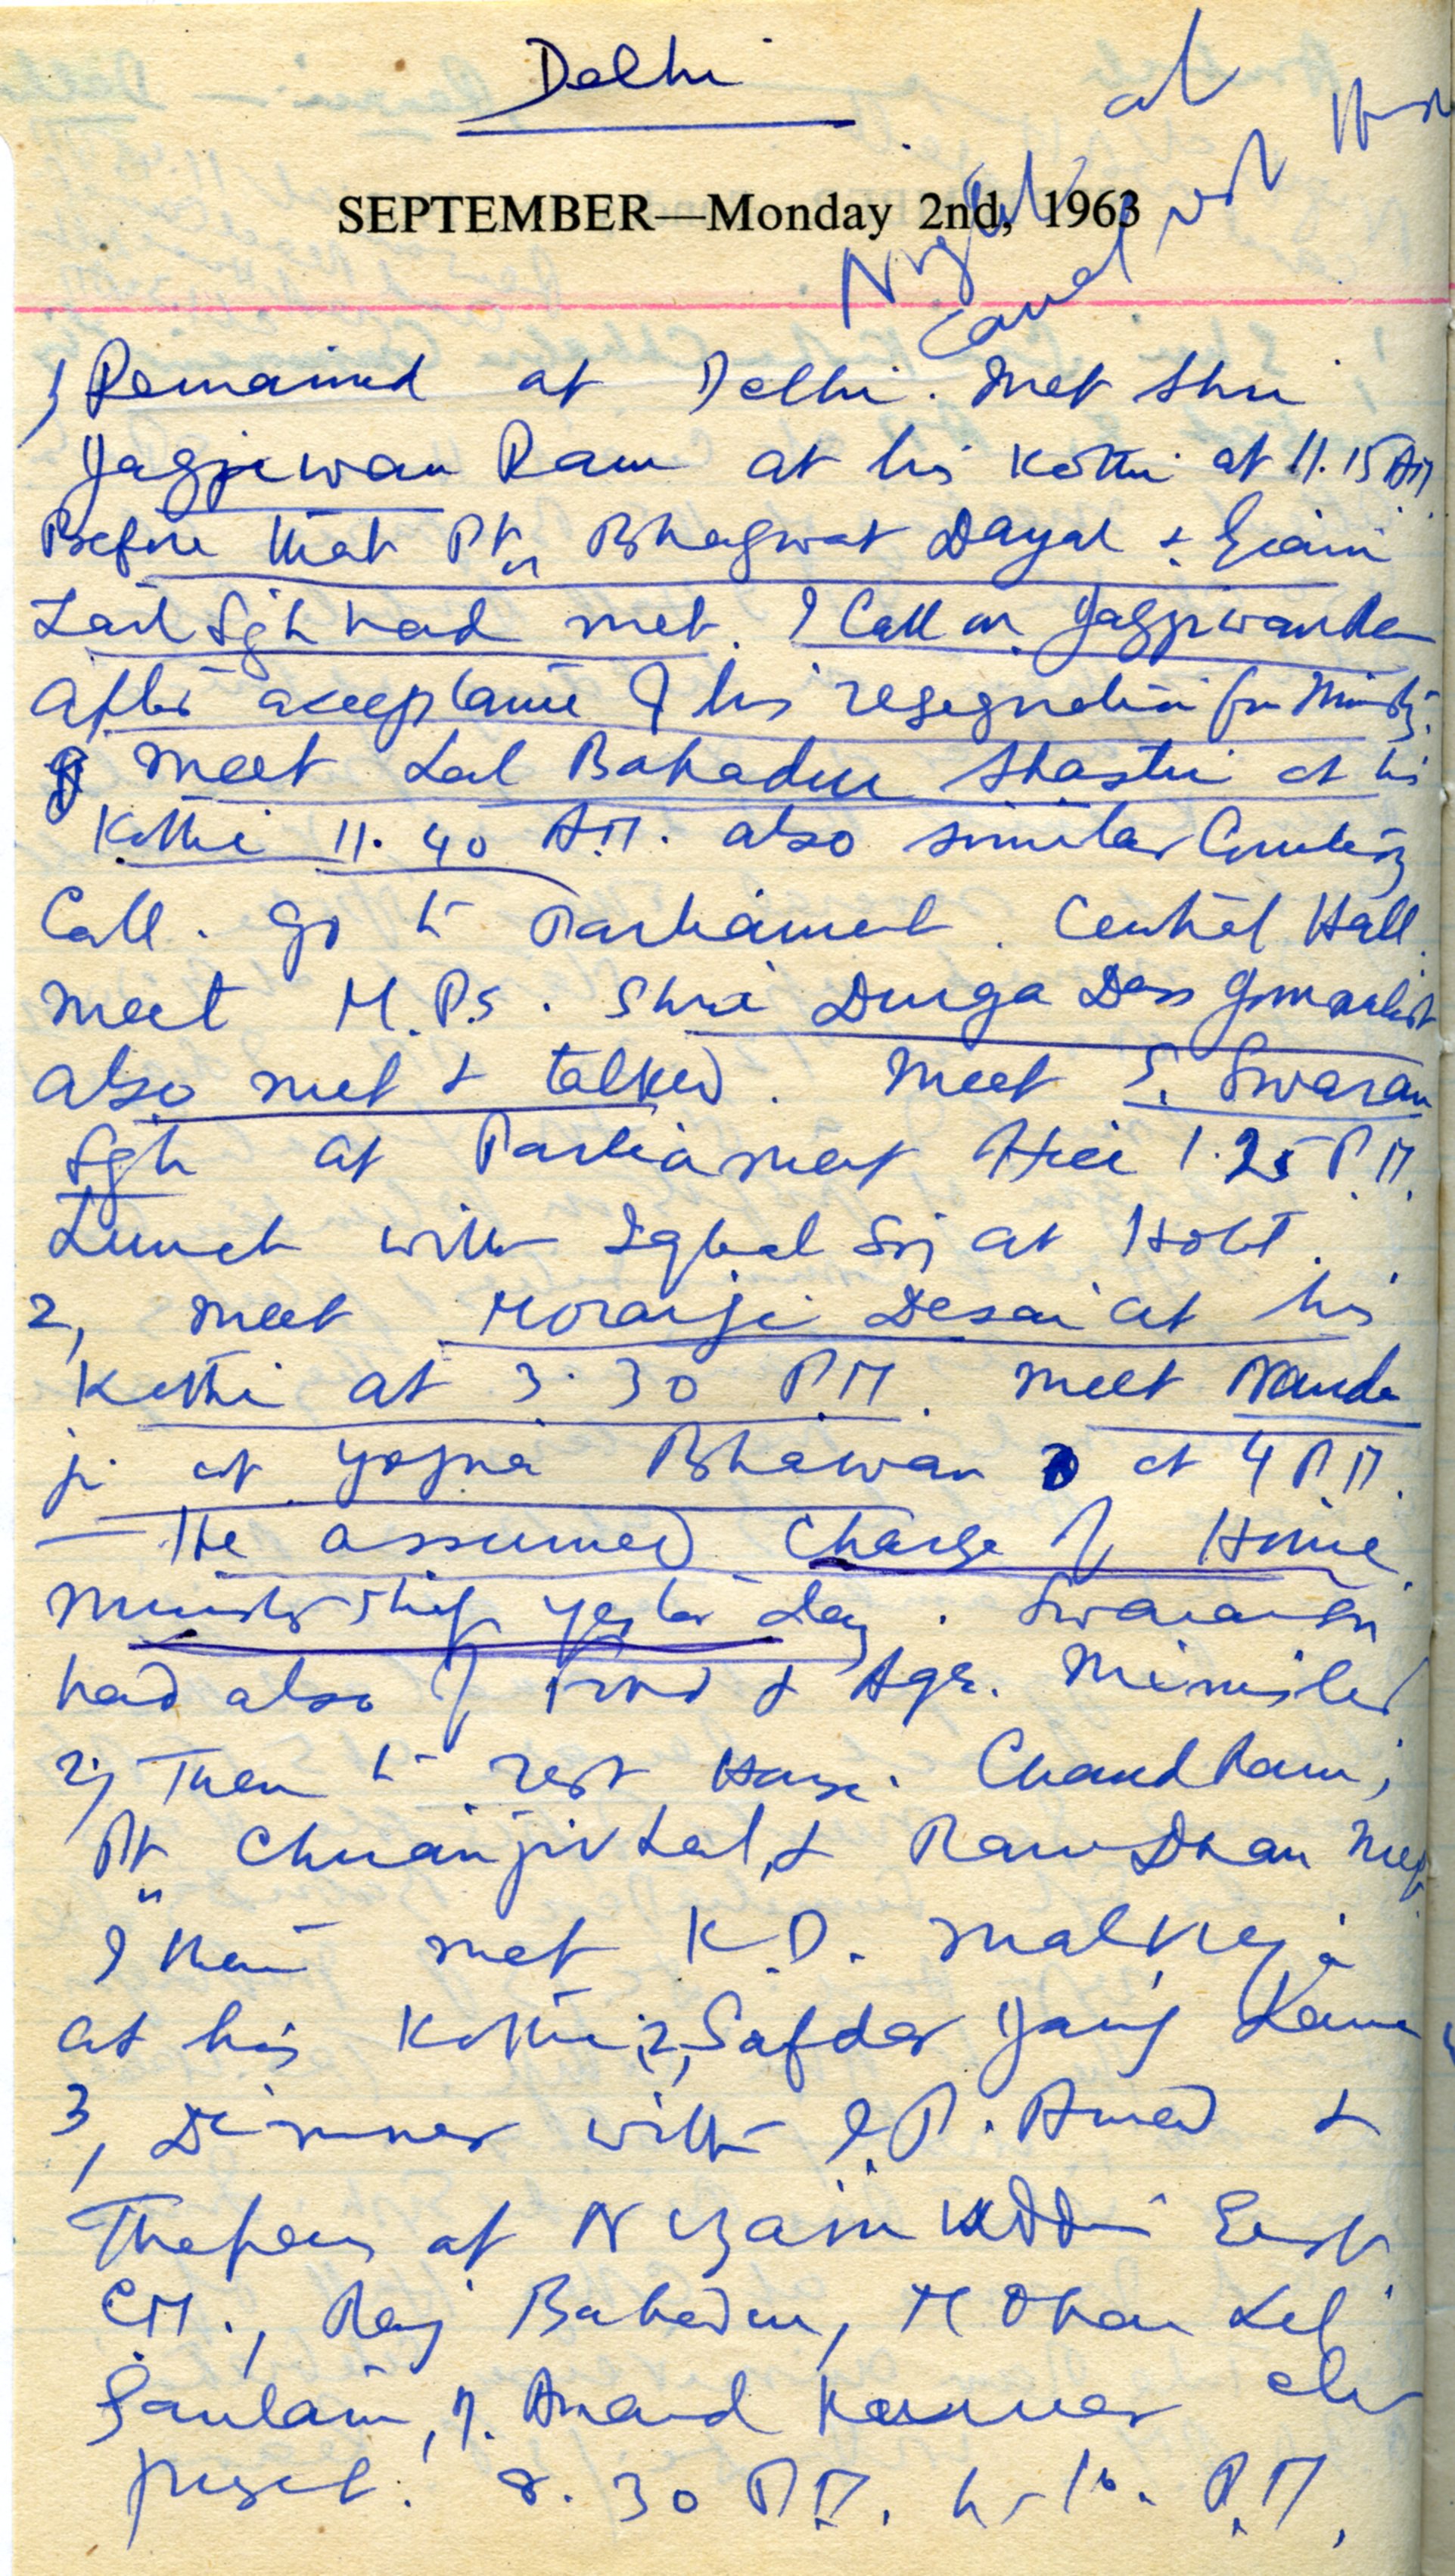 Delhi
Night at
Canal rest House
SEPTEMBER—Monday 2nd, 1963
1) Remained at Delhi. Met Shri
Jagjiwan Ram at his Kothi at 11.15 AM
Before that Pt. Bhagwat Dayal & Giani
Lal Sgh had met. I Call on Jagjiwan Ram
after acceptance of his resegnation from Ministry.
meet Lal Bahadur Shastri at his
Kothi 11.40 A.M. also similar Courtesy
Call. go to Parliament. Central Hall.
meet M.P.s. Shri Durga Dass Journalist
also met & talked. Meet S. Swaran
Sgh at Parliament House 1.25 P.M.
Lunch with Iqbal Sgh at Hotel.
2, meet Morarji Desai at his
Kothi at 3.30 P.M. meet Nanda
ji at Yojna Bhawan at 4 P.M.
— He assumed Charge of Home
Ministership yesterday. Swaran Sgh
had also of Food & Agr. Minister
2) Then to rest House. Chand Ram,
Pt. Chiranjiv Lal, & Ram Dhan meet
I then met K.D. Malveja
at his Kothi, 2, Safdar Jang Lane
3, Dinner with &
Thapar at Nizam Uddin East
CM., Raj Bahadur, Mohan Lal
Gautam, Anand Kumar etc
preset. 8.30 P.M. to 10. P.M.